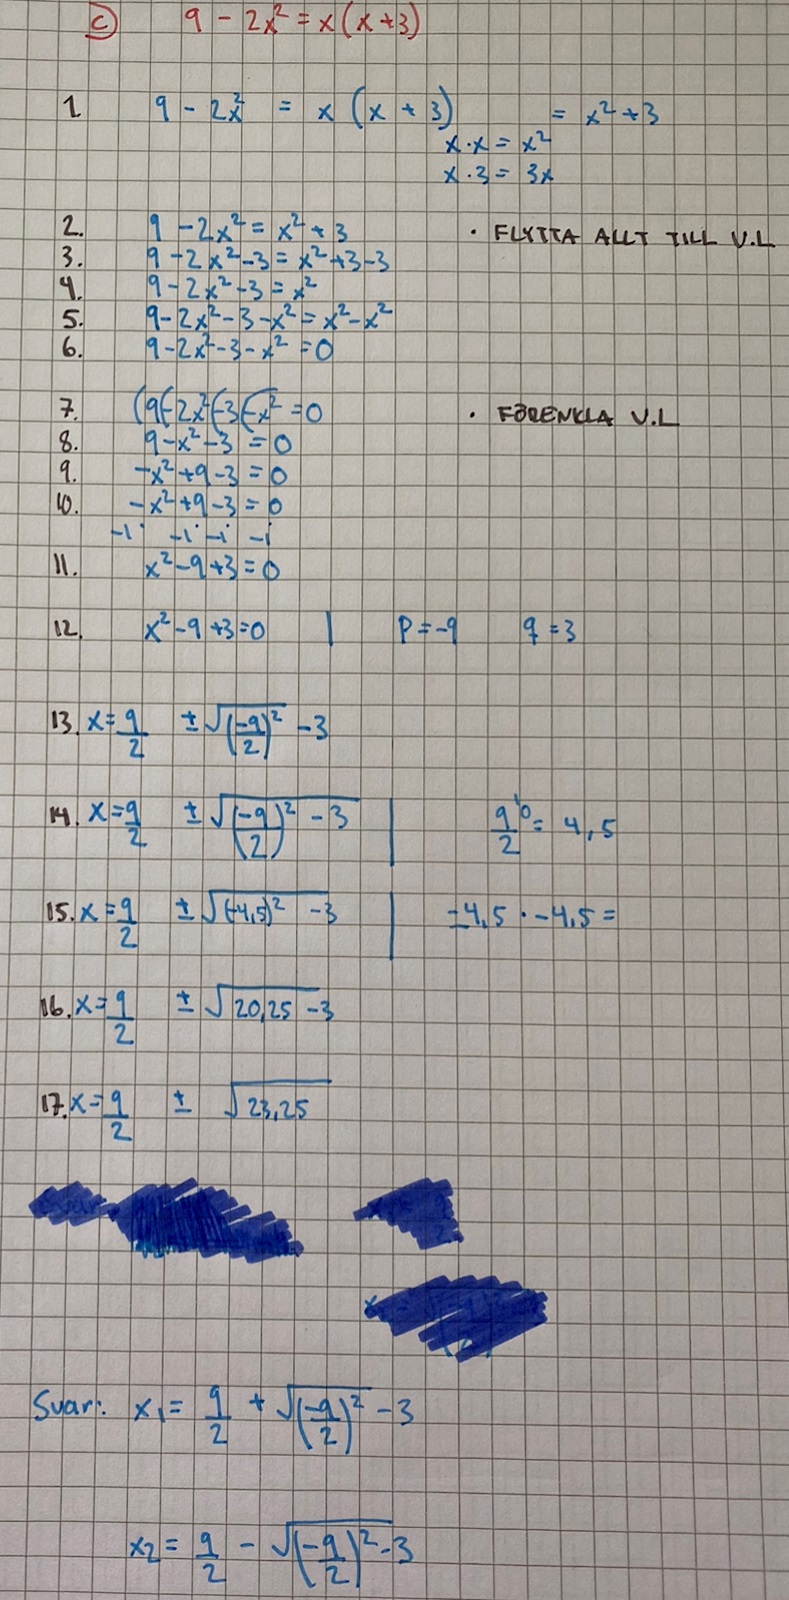 c) 9 - 2x² = x(x+3)
1. 9 - 2x² = x (x + 3) = x² + 3
x · x = x²
x · 3 = 3x
2. 9 - 2x² = x² + 3 · FLYTTA ALLT TILL V.L
3. 9 - 2x² - 3 = x² + 3 - 3
4. 9 - 2x² - 3 = x²
5. 9 - 2x² - 3 - x² = x² - x²
6. 9 - 2x² - 3 - x² = 0
7. (9(-2x²(-3(-x² = 0 · FÖRENKLA V.L
8. 9 - x² - 3 = 0
9. -x² + 9 - 3 = 0
10. -x² + 9 - 3 = 0
-1· -1· -1· -1
11. x² - 9 + 3 = 0
12. x² - 9 + 3 = 0 | P = -9 q = 3
13. x = 9/2 ± √(-9/2)² - 3
14. x = 9/2 ± √(-9/2)² - 3 | 9¹⁰/2 = 4,5
15. x = 9/2 ± √(-4,5)² - 3 | -4,5 · -4,5 =
16. x = 9/2 ± √20,25 - 3
17. x = 9/2 ± √23,25
Svar: x₁ = 9/2 + √(-9/2)² - 3
x₂ = 9/2 - √(-9/2)² - 3